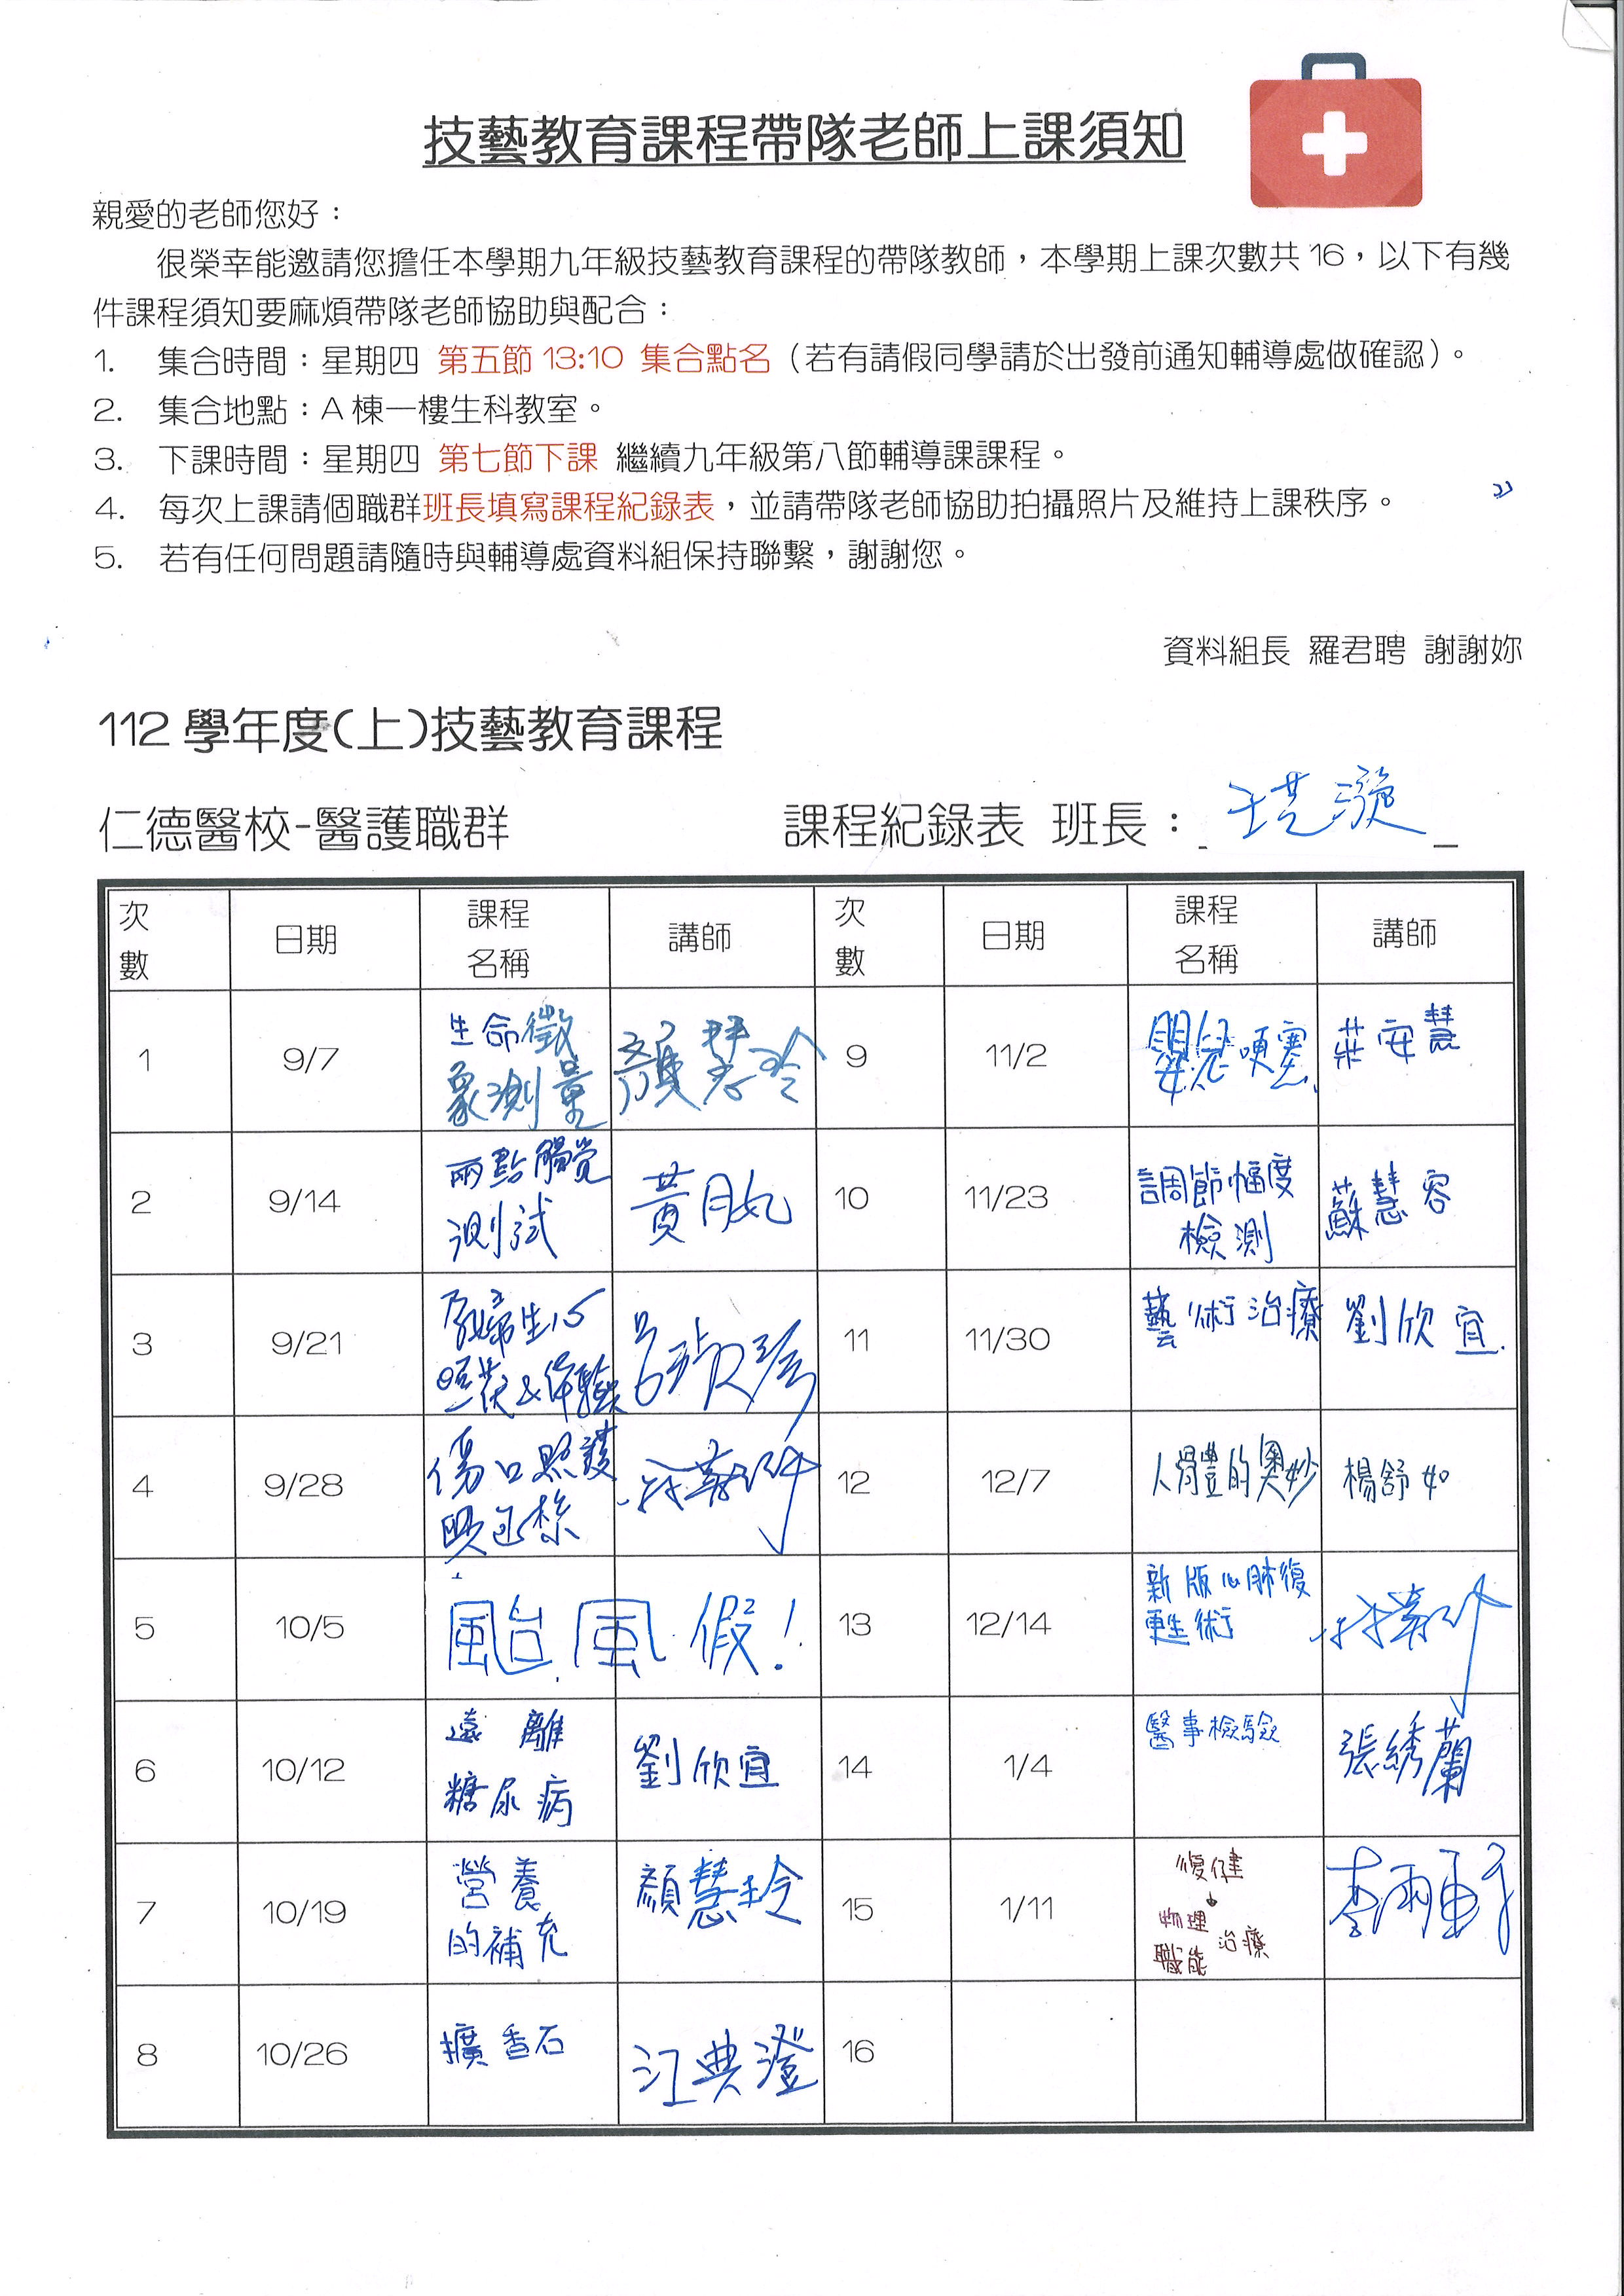 技藝教育課程帶隊老師上課須知
親愛的老師您好：
很榮幸能邀請您擔任本學期九年級技藝教育課程的帶隊教師，本學期上課次數共16，以下有幾
件課程須知要麻煩帶隊老師協助與配合：
1. 集合時間：星期四 第五節 13:10 集合點名（若有請假同學請於出發前通知輔導處做確認）。
2. 集合地點：A 棟一樓生科教室。
3. 下課時間：星期四 第七節下課 繼續九年級第八節輔導課課程。
4. 每次上課請個職群班長填寫課程紀錄表，並請帶隊老師協助拍攝照片及維持上課秩序。
5. 若有任何問題請隨時與輔導處資料組保持聯繫，謝謝您。
資料組長 羅君聘 謝謝妳
112 學年度(上)技藝教育課程
仁德醫校-醫護職群 課程紀錄表 班長：
次數 日期 課程名稱 講師 次數 日期 課程名稱 講師
1 9/7 生命徵象測量 顏慧玲 9 11/2 嬰兒哽塞 莊安慧
2 9/14 兩點觸覺測試 黃 10 11/23 調節幅度檢測 蘇慧容
3 9/21 孕婦生心 & 体驗 呂 11 11/30 藝術治療 劉欣宜
4 9/28 傷口照護與包紮 12 12/7 人體的奧妙 楊舒如
5 10/5 颱風假！ 13 12/14 新版心肺復甦術
6 10/12 遠離糖尿病 劉欣宜 14 1/4 醫事檢驗 張綉蘭
7 10/19 營養的補充 顏慧玲 15 1/11 復健 物理 職能 治療 李
8 10/26 擴香石 江典澄 16